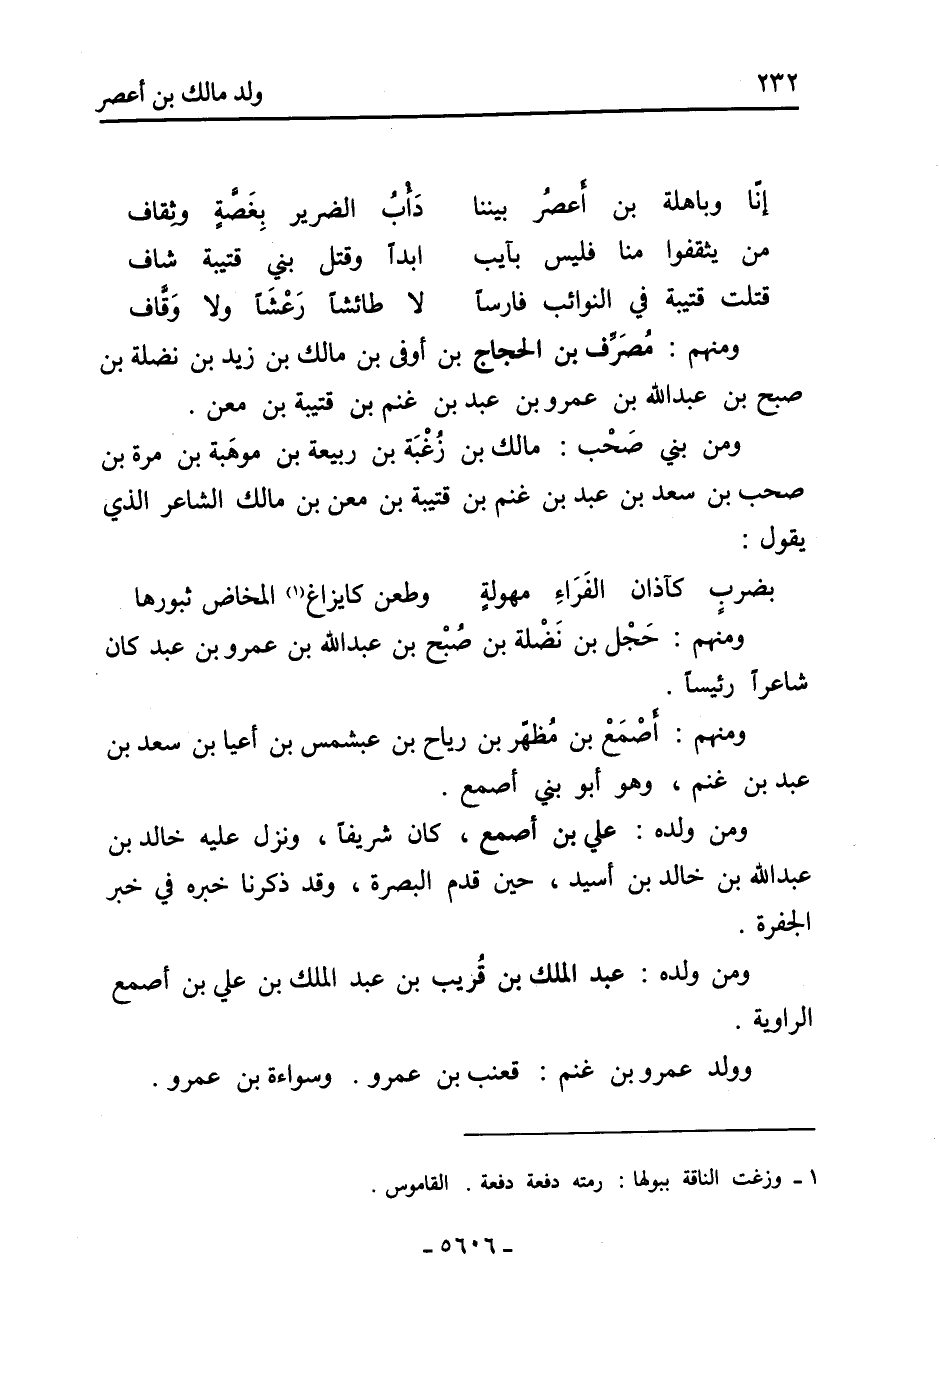 ٢٣٢
ولد مالك بن أعصر
إنّا وباهلة بن أَعصرُ بيننا دَأْبُ الضرير بِغَصَّةٍ وثِقاف
من يثقفوا منا فليس بآيب ابداً وقتل بني قتيبة شاف
قتلت قتيبة في النوائب فارساً لا طائشاً رَعْشَاً ولا وَقَّاف
ومنهم : مُصَرِّف بن الحجاج بن أوفى بن مالك بن زيد بن نضلة بن
صبح بن عبدالله بن عمرو بن عبد بن غنم بن قتيبة بن معن .
ومن بني صَحْب : مالك بن زُغْبَة بن ربيعة بن موهَبة بن مرة بن
صحب بن سعد بن عبد بن غنم بن قتيبة بن معن بن مالك الشاعر الذي
يقول :
بضربٍ كآذان الفَرَاءِ مهولةٍ وطعن كايزاغ(١) المخاض ثبورها
ومنهم : حَجْل بن نَضْلة بن صُبْح بن عبدالله بن عمرو بن عبد كان
شاعراً رئيساً .
ومنهم : أَصْمَعْ بن مُظهّر بن رياح بن عبشمس بن أعيا بن سعد بن
عبد بن غنم ، وهو أبو بني أصمع .
ومن ولده : علي بن أصمع ، كان شريفاً ، ونزل عليه خالد بن
عبدالله بن خالد بن أسيد ، حين قدم البصرة ، وقد ذكرنا خبره في خبر
الجفرة .
ومن ولده : عبد الملك بن قُريب بن عبد الملك بن علي بن أصمع
الراوية .
وولد عمرو بن غنم : قعنب بن عمرو . وسواءة بن عمرو .
١ ـ وزغت الناقة ببولها : رمته دفعة دفعة . القاموس .
ـ ٥٦٠٦ ـ